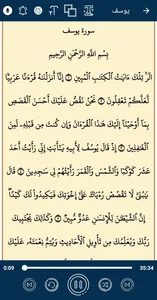 يوسف
سورة يوسف
بِسْمِ اللَّهِ الرَّحْمَٰنِ الرَّحِيمِ
الٓر ۚ تِلْكَ ءَايَٰتُ الْكِتَٰبِ الْمُبِينِ ۝١ إِنَّآ أَنزَلْنَٰهُ قُرْءَٰنًا عَرَبِيًّا
لَّعَلَّكُمْ تَعْقِلُونَ ۝٢ نَحْنُ نَقُصُّ عَلَيْكَ أَحْسَنَ الْقَصَصِ
بِمَآ أَوْحَيْنَآ إِلَيْكَ هَٰذَا الْقُرْءَانَ وَإِن كُنتَ مِن قَبْلِهِۦ لَمِنَ
الْغَٰفِلِينَ ۝٣ إِذْ قَالَ يُوسُفُ لِأَبِيهِ يَٰٓأَبَتِ إِنِّى رَأَيْتُ أَحَدَ
عَشَرَ كَوْكَبًا وَالشَّمْسَ وَالْقَمَرَ رَأَيْتُهُمْ لِى سَٰجِدِينَ ۝٤ قَالَ
يَٰبُنَىَّ لَا تَقْصُصْ رُءْيَاكَ عَلَىٰٓ إِخْوَتِكَ فَيَكِيدُوا۟ لَكَ كَيْدًا ۖ
إِنَّ الشَّيْطَٰنَ لِلْإِنسَٰنِ عَدُوٌّ مُّبِينٌ ۝٥ وَكَذَٰلِكَ يَجْتَبِيكَ
رَبُّكَ وَيُعَلِّمُكَ مِن تَأْوِيلِ الْأَحَادِيثِ وَيُتِمُّ نِعْمَتَهُۥ عَلَيْكَ
0:09 35:34